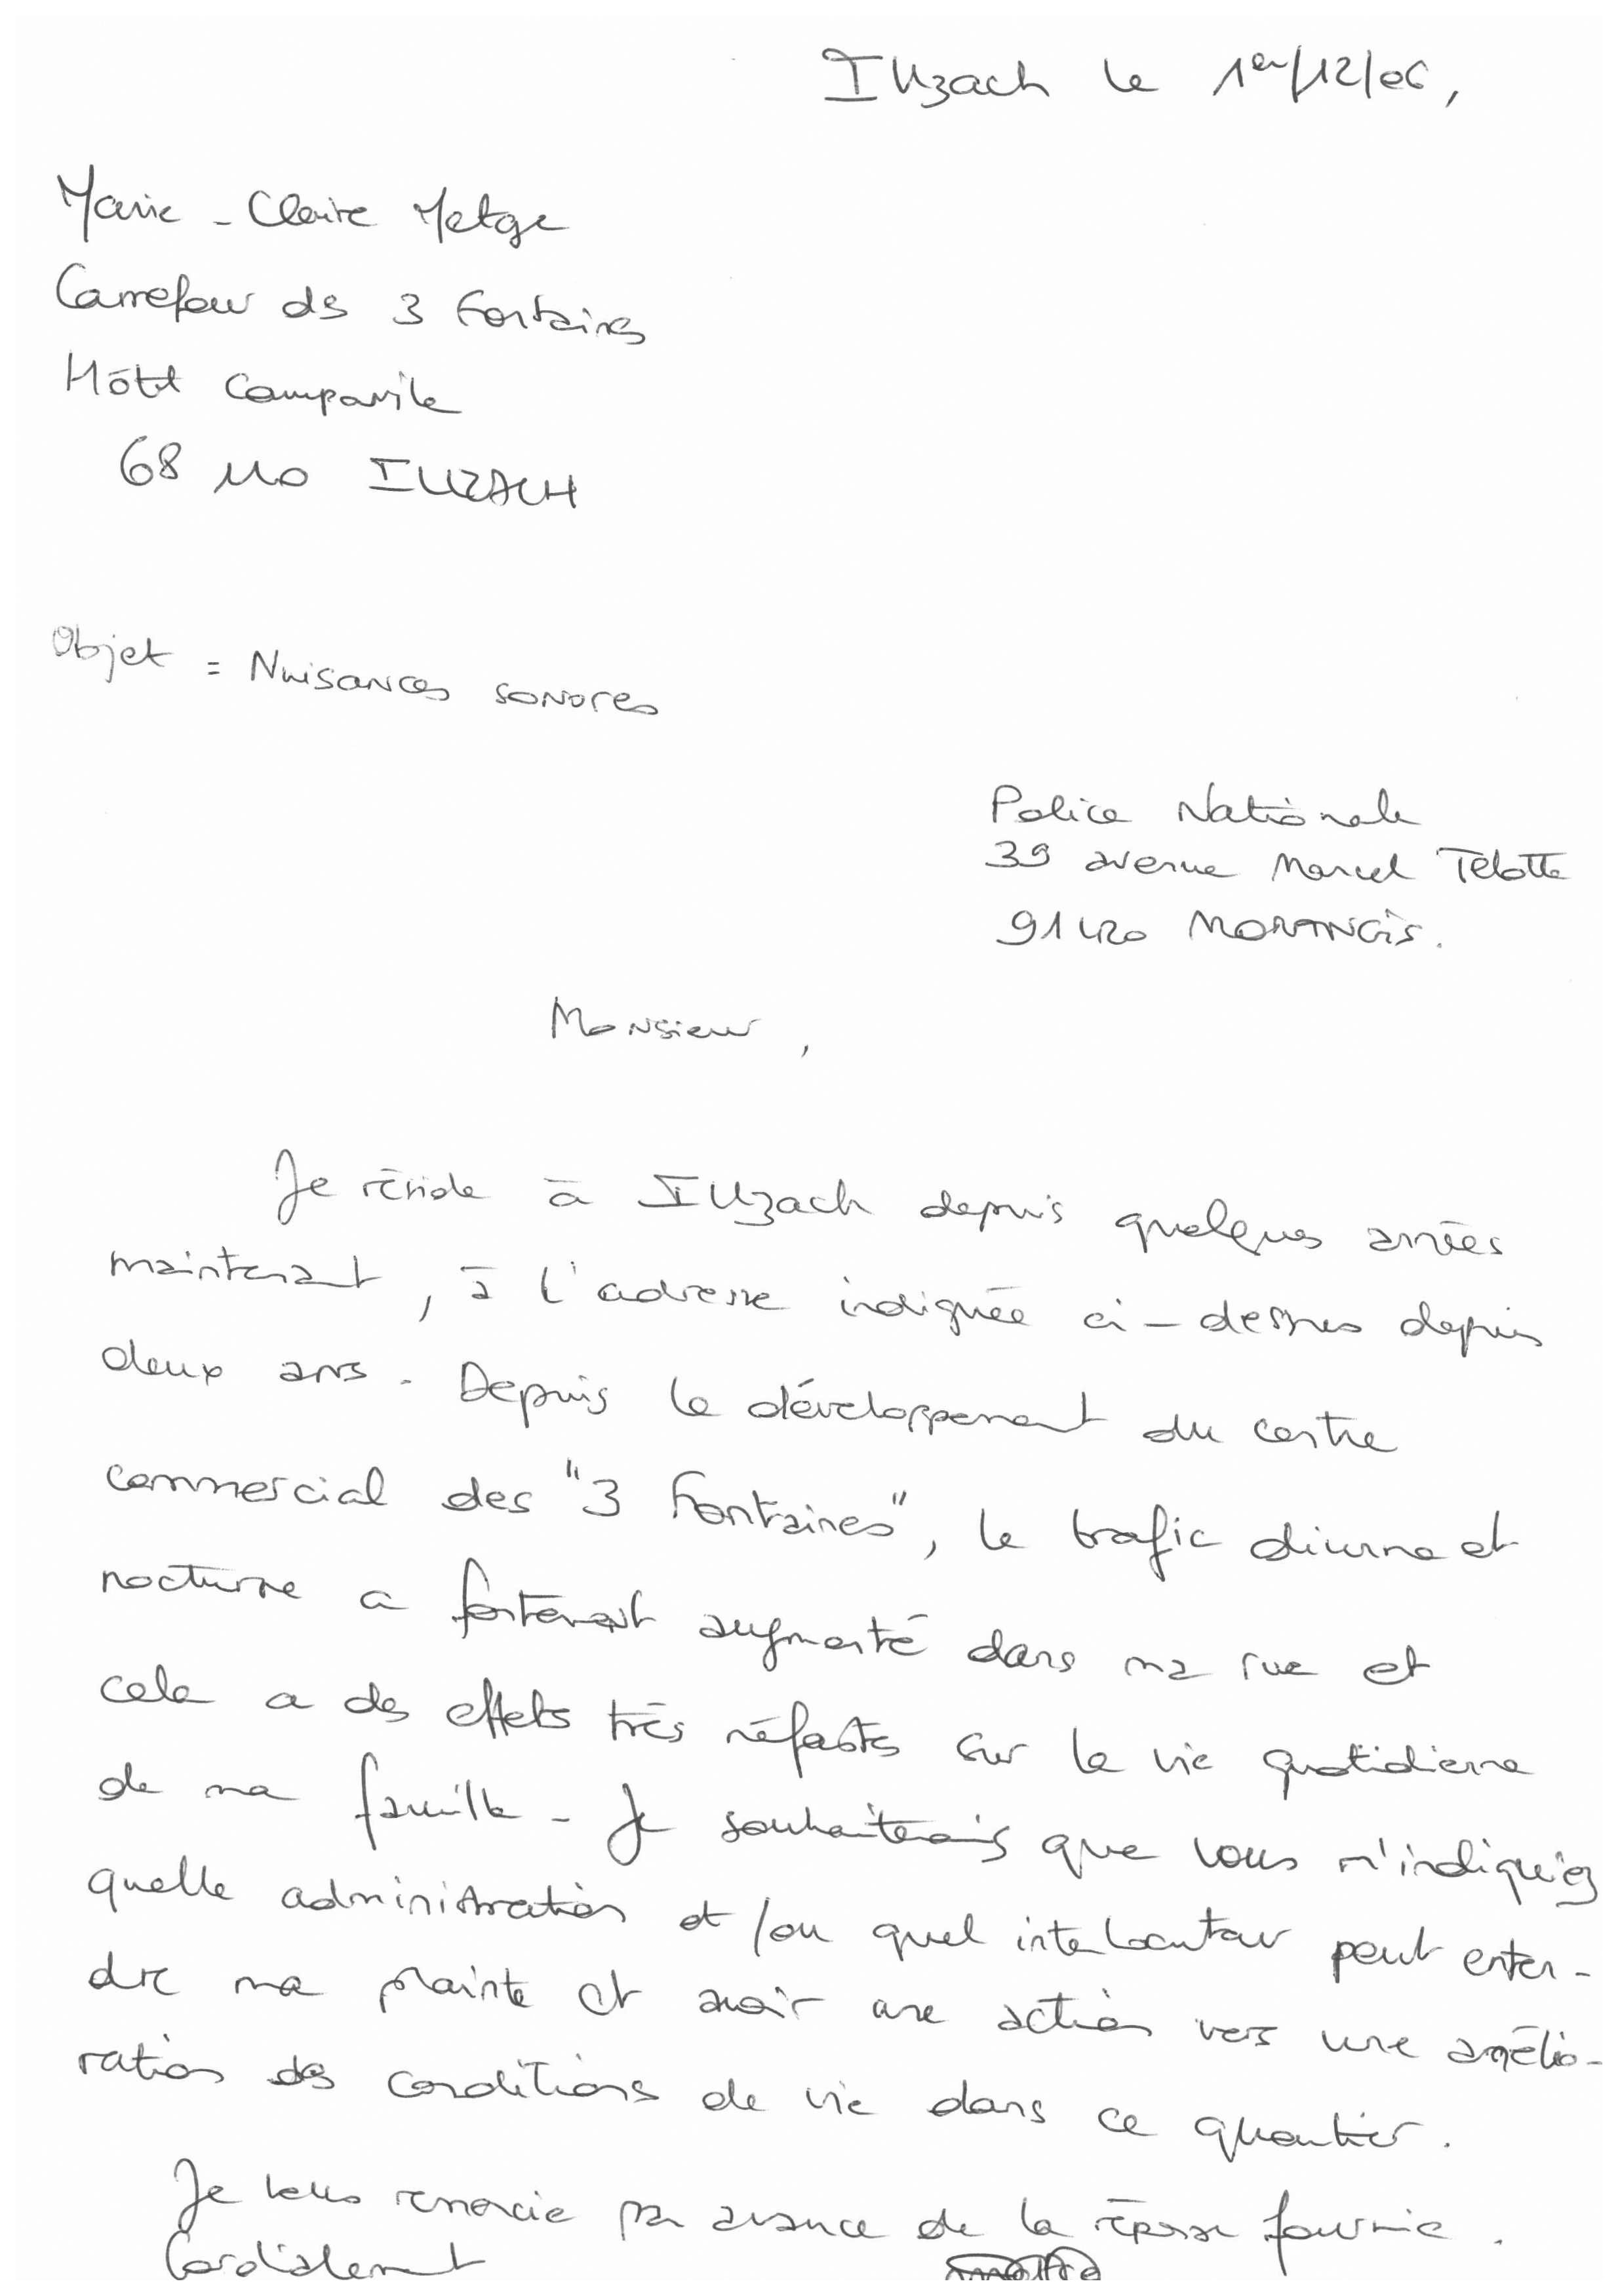 Illzach le 1er/12/06,
Marie-Claire Metge
Carrefour des 3 Fontaines
Hôtel Campanile
68 110 ILLZACH
Objet = Nuisances sonores
Police Nationale
39 avenue Marcel
91420 MORANGIS.
Monsieur,
Je réside à Illzach depuis quelques années
maintenant, à l'adresse indiquée ci-dessus depuis
deux ans. Depuis le développement du centre
commercial des "3 Fontaines", le trafic diurne et
nocturne a fortement augmenté dans ma rue et
cela a des effets très néfastes sur la vie quotidienne
de ma famille. Je souhaiterais que vous m'indiquiez
quelle administration et/ou quel interlocuteur peut enten-
dre ma plainte et avoir une action vers une amélio-
ration des conditions de vie dans ce quartier.
Je vous remercie par avance de la réponse fournie.
Cordialement